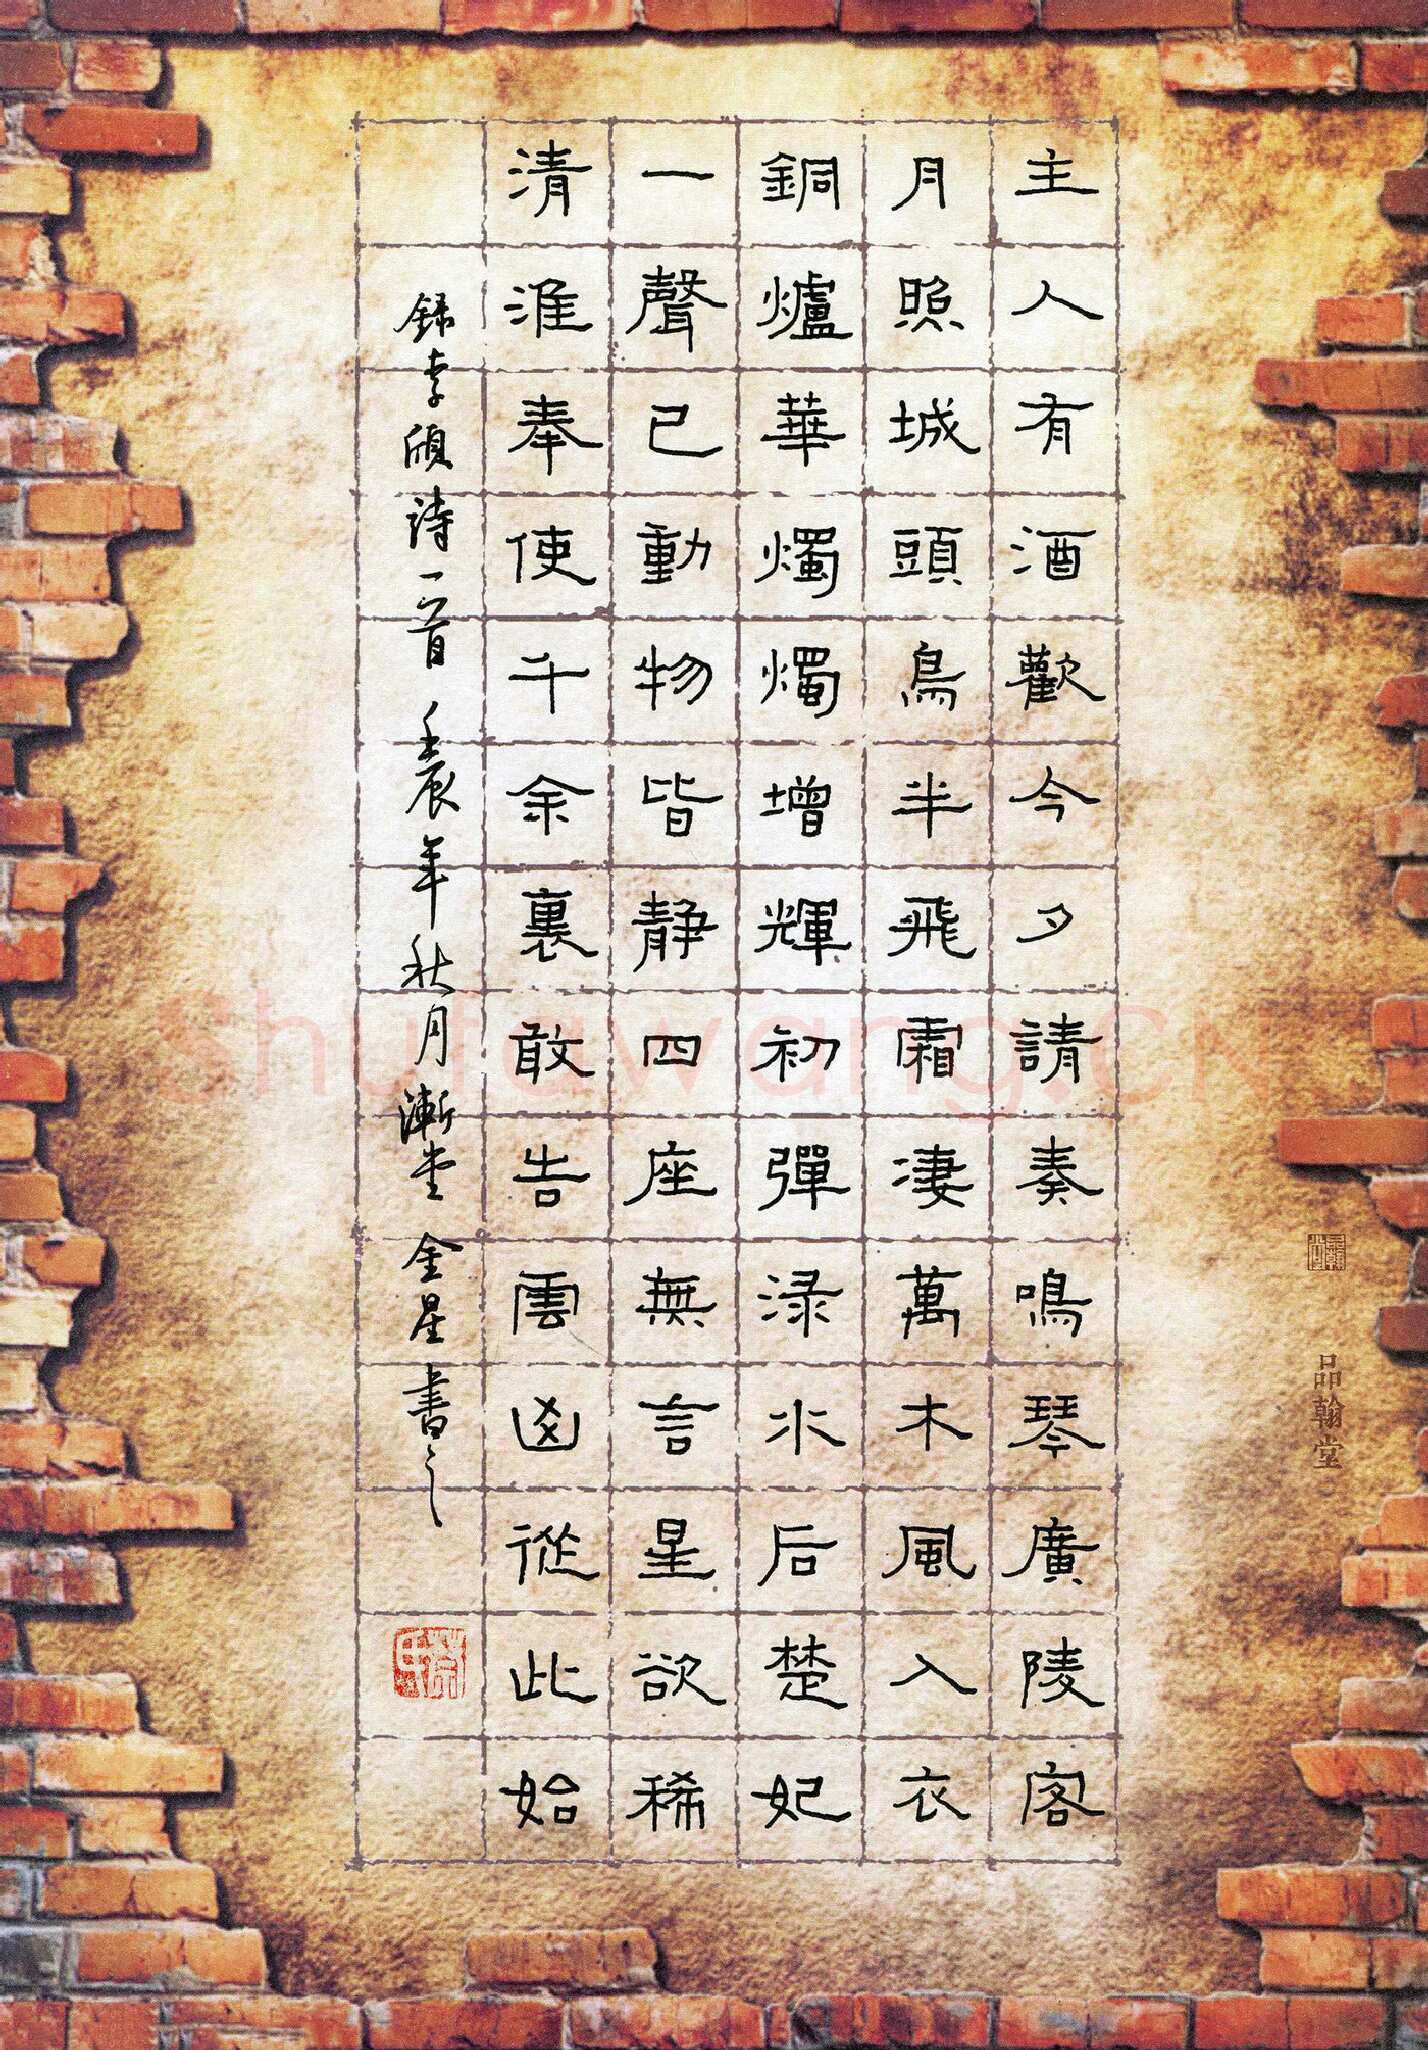 主人有酒歡今夕請奏鳴琴廣陵客
月照城頭鳥半飛霜凄萬木風入衣
銅爐華燭燭增輝初彈淥水后楚妃
一聲已動物皆静四座無言星欲稀
清淮奉使千余裏敢告雲凶從此始
録李頎詩一首 壬辰年秋月漸堂 金星書之
品翰堂
Shufawang.cn